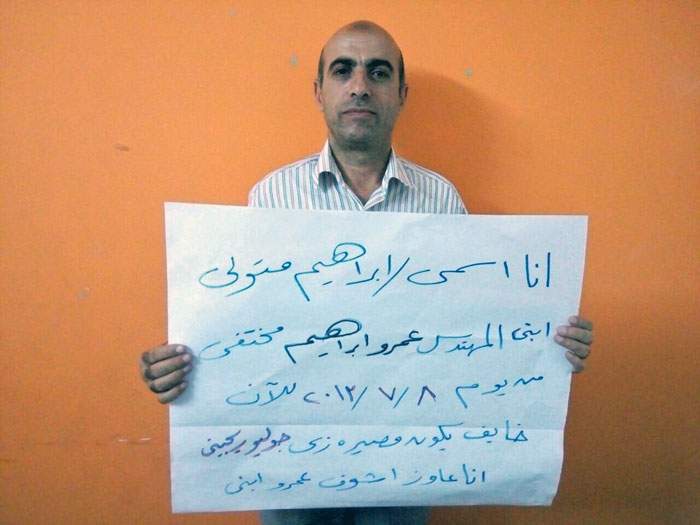 انا اسمى / ابراهيم متولى
ابنى المهندس عمرو ابراهيم مختفى
من يوم ٨ / ٧ / ٢٠١٣ للآن
خايف يكون مصيره زى جوليو ريجينى
انا عاوز اشوف عمرو ابنى